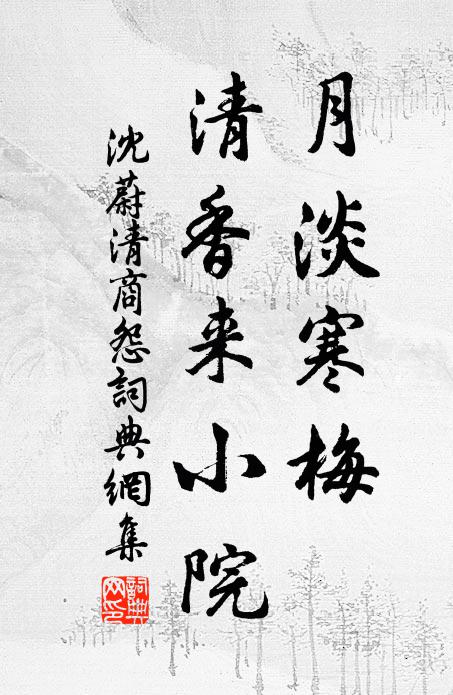 月淡寒梅
清香来小院
沈蔚清商怨詞典網集
詞典
网印